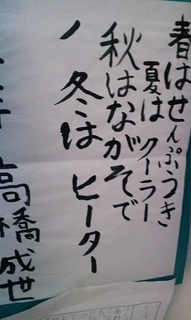 春はせんぷうき
夏は クーラー
秋はながそで
冬は ヒーター
高橋成世